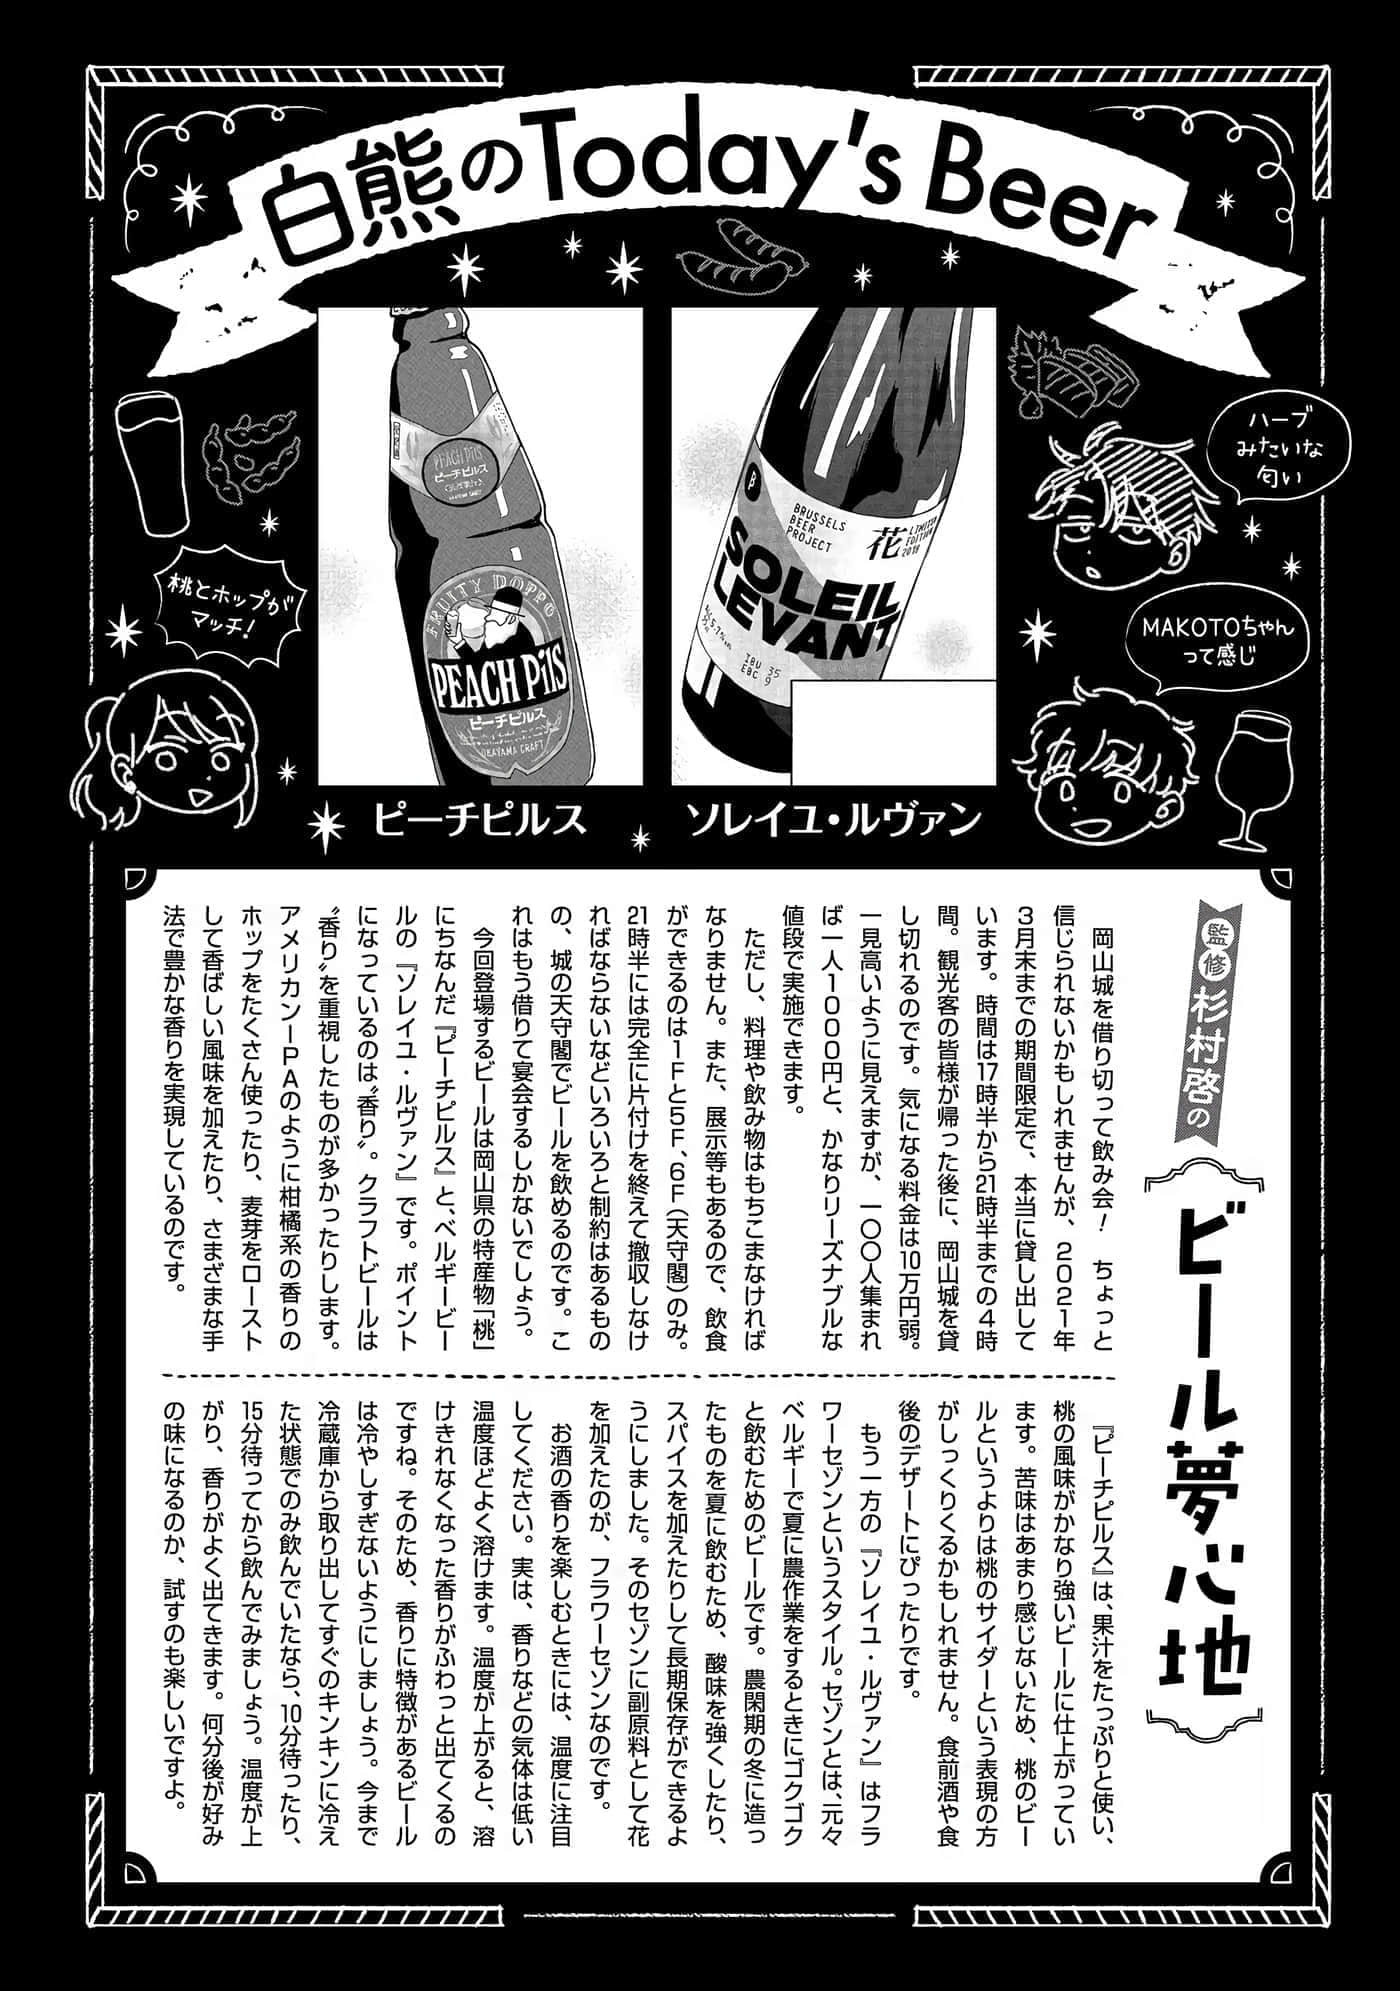 白熊のToday's Beer
ハーブ
みたいな
匂い
MAKOTOちゃん
って感じ
桃とホップが
マッチ!
BRUSSELS
BEER
PROJECT
花
LIMITED
EDITION
2018
SOLEIL
LEVANT
IBU 35
EBC 9
PEACH PilS
ピーチピルス
FRUITY DOPPO
PEACH PilS
ピーチピルス
OKAYAMA CRAFT
ソレイユ・ルヴァン
ピーチピルス
監修 杉村啓の
ビール夢心地
岡山城を借り切って飲み会! ちょっと
信じられないかもしれませんが、2021年
3月末までの期間限定で、本当に貸し出して
います。時間は17時半から21時半までの4時
間。観光客の皆様が帰った後に、岡山城を貸
し切れるのです。気になる料金は10万円弱。
一見高いように見えますが、一〇〇人集まれ
ば一人1000円と、かなりリーズナブルな
値段で実施できます。
ただし、料理や飲み物はもちこまなければ
なりません。また、展示等もあるので、飲食
ができるのは1Fと5F、6F(天守閣)のみ。
21時半には完全に片付けを終えて撤収しなけ
ればならないなどいろいろと制約はあるもの
の、城の天守閣でビールを飲めるのです。こ
れはもう借りて宴会するしかないでしょう。
今回登場するビールは岡山県の特産物「桃」
にちなんだ『ピーチピルス』と、ベルギービー
ルの『ソレイユ・ルヴァン』です。ポイント
になっているのは〝香り〟。クラフトビールは
〝香り〟を重視したものが多かったりします。
アメリカンIPAのように柑橘系の香りの
ホップをたくさん使ったり、麦芽をロースト
して香ばしい風味を加えたり、さまざまな手
法で豊かな香りを実現しているのです。
『ピーチピルス』は、果汁をたっぷりと使い、
桃の風味がかなり強いビールに仕上がってい
ます。苦味はあまり感じないため、桃のビー
ルというよりは桃のサイダーという表現の方
がしっくりくるかもしれません。食前酒や食
後のデザートにぴったりです。
もう一方の『ソレイユ・ルヴァン』はフラ
ワーセゾンというスタイル。セゾンとは、元々
ベルギーで夏に農作業をするときにゴクゴク
と飲むためのビールです。農閑期の冬に造っ
たものを夏に飲むため、酸味を強くしたり、
スパイスを加えたりして長期保存ができるよ
うにしました。そのセゾンに副原料として花
を加えたのが、フラワーセゾンなのです。
お酒の香りを楽しむときには、温度に注目
してください。実は、香りなどの気体は低い
温度ほどよく溶けます。温度が上がると、溶
けきれなくなった香りがふわっと出てくるの
ですね。そのため、香りに特徴があるビール
は冷やしすぎないようにしましょう。今まで
冷蔵庫から取り出してすぐのキンキンに冷え
た状態でのみ飲んでいたなら、10分待ったり、
15分待ってから飲んでみましょう。温度が上
がり、香りがよく出てきます。何分後が好み
の味になるのか、試すのも楽しいですよ。